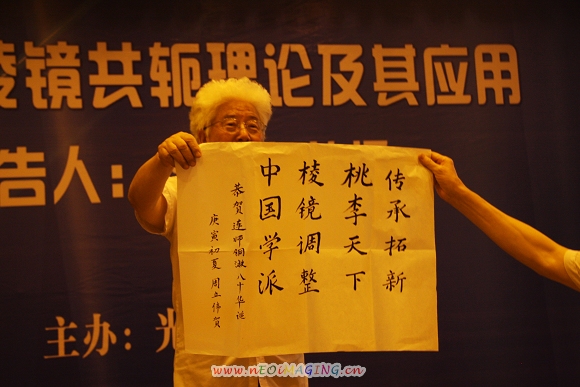 棱镜共轭理论及其应用
告人：
传承拓新
桃李天下
棱镜调整
中国学派
恭贺连师铜淑八十华诞
庚寅初夏 周立伟贺
主办：光
www.nEOiMAGiNG.cn